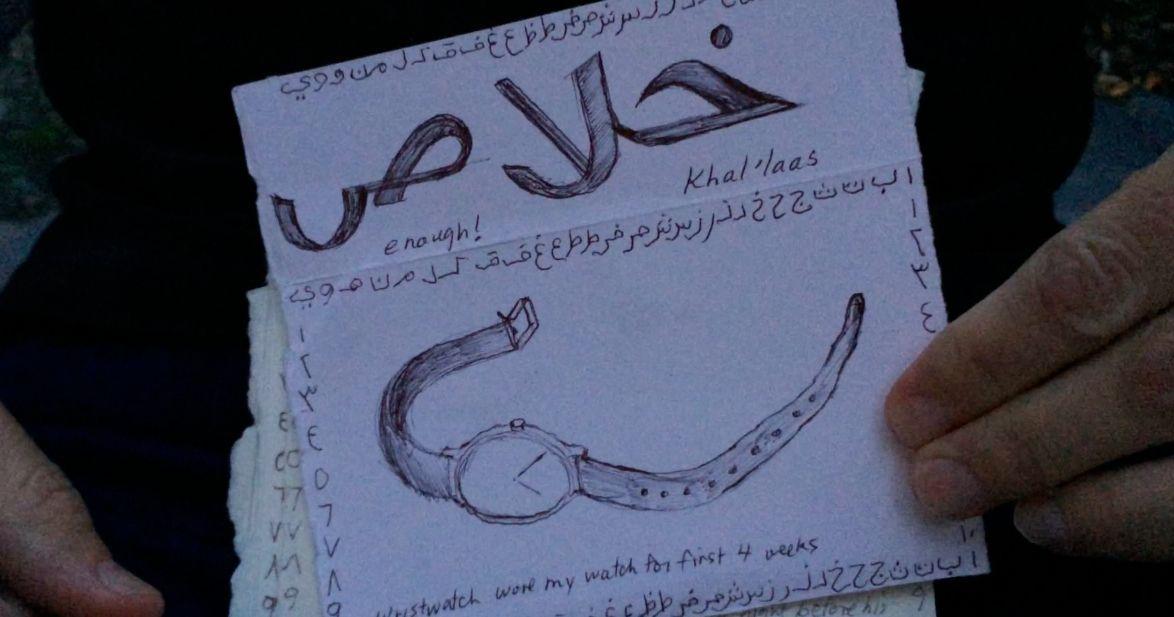 ر ز س ش ص ض ط ظ ع غ ف ق ك ل م ن و و ي
خلاص
Khal'laas
enough!
ا ب ت ث ج ح خ د ذ ر ز س ش ص ض ط ظ ع غ ف ق ك ل م ن ه و ي
١
٢
٣
٤
١٠
١
٢
٣
٤
٥
٦
٧
٨
٩
wristwatch wore my watch for first 4 weeks
ا ب ت ث ج ح خ د ذ ر ز س ش ص ض ط ظ ع غ
before his